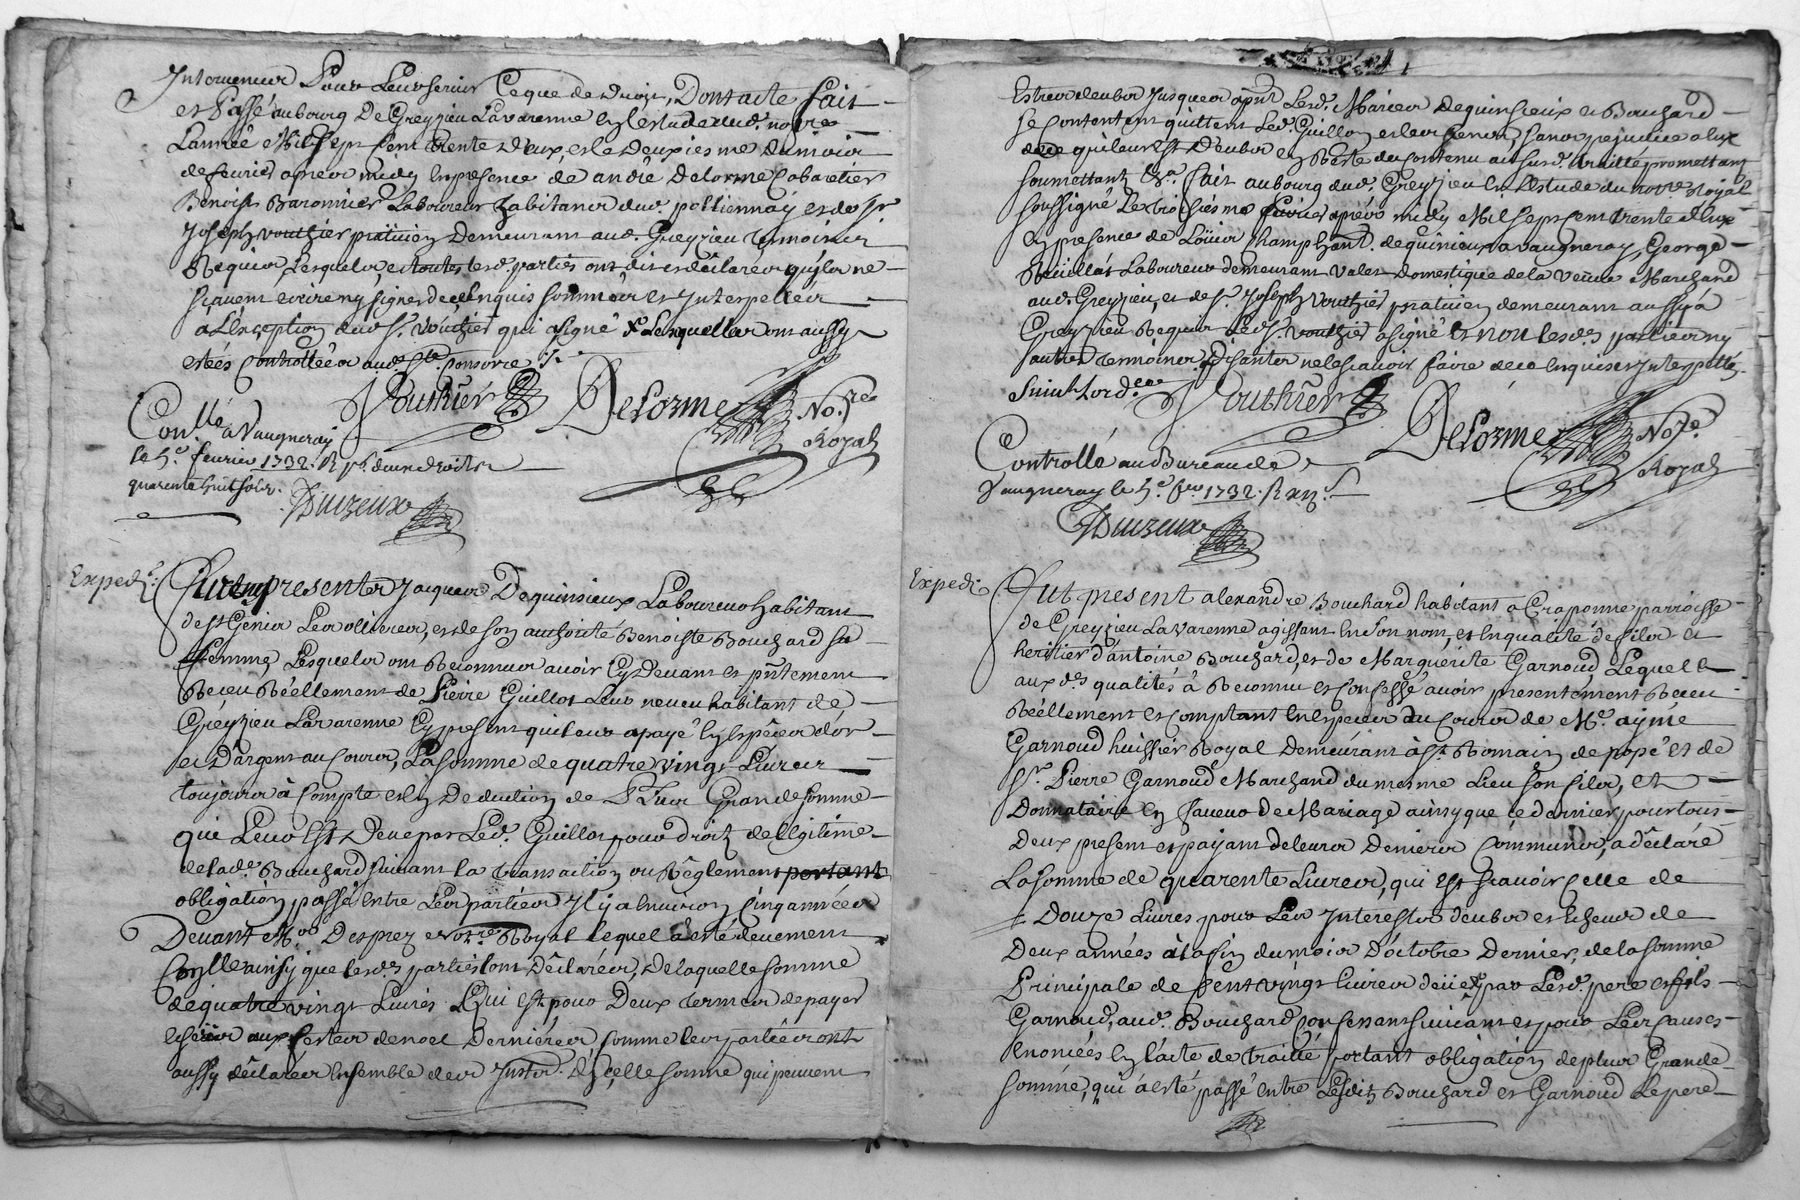 Intervenir Pour Leur servir Ce que de droit, Dont acte fait
et Passé au bourg De Greyzieu Lavarenne En l'estude dud. no.re
L'année Mil Sept Cent trente deux, et le deuxiesme du mois
de fevrier apres midy En presence de andré Delorme Cabaretier
Benoist Baronnier Laboureur habitans dud. pollionnay et de Sr.
Joseph vouthier praticien Demeurant aud. Greyzieu temoins
Requis, Lesquels, et toutes lesd. parties ont dit et déclaré qu'ils ne
sçavent écrire ny signer de ce Enquis sommés et Interpellés
a L'exception dud. Sr. vouthier qui a signé & Lesquelles ont aussy
estés Controllées
Vouthier Delorme No.re
Royal
Con.llé a Vaugneray
le 5.e fevrier 1732. R
quarente huit sols.
Duizeux
Expedi.é
Furent presentes Jacques Dequinsieux Laboureur habitant
de St Genis Les ollieres, et de son authorité Benoiste Bouchard sa
femme, Lesquels ont Reconnu avoir Cy Devant et pntement
Receu Réellement de Pierre Guillot Leur neveu habitant de
Gréyzieu Lavarenne Cy present qui leur a payé En Espéces d'or
et D'argent au Cours, La somme de quatre vingt Livres
toujours à Compte et En Deduction de Plus Grande somme
que Leur Est Deue par Led. Guillot pour droit de Legitime
de lad.e Bouchard suivant la transaction ou Réglement portant
obligation passé Entre Les parties Il y a Environ Cinq années
Devant M.re Desprez Notre Royal lequel a esté deuement
Con.llé ainsy que lesd.es parties l'ont Déclarées, De laquelle somme
de quatre vingt Livres Qui Est pour Deux termes de payer
echeus aux festes de noel Dernieres comme les parties ont
aussy déclarées Ensemble des Justes. D'icelle somme qui peuvent
Estre deubs Jusques a pnt Lesd. Mariés Dequinsieux et Bouchard
se contentent quittent Led. Guillot et les siens, sans prejudice a eux
de ce qu'il leur est Deubs En Reste du contenu au susd. traitté promettant
soumettant &.a fait au bourg dud. Greyzieu En L'Estude du no.re Royal
soussigné Le troisiésme fevrier aprés midy Mil sept cent trente deux
En presence de Loüis Champhant dequinieux a vaugneray, George
Laboureur demeurant valet domestique de la veuve Marchand
aud. Greyzieu, et de Sr. Joseph Vouthier praticien demeurant aussy a
Greyzieu Requis Led. Sr. Vouthier a signé Et non lesd.es parties ny
autres temoins Disantes ne le scavoir faire de ce Enquis et Interpellés
suiv.t L'ord.ce
Vouthier Delorme No.re
Royal
Controllé au Bureau de
Vaugneray le 5.e fer 1732. R
Duizeux
Expedi.
Fut present alexandre Bouchard habitant a Craponne parroisse
de Greyzieu La Varenne agissant En son nom, et En qualité de fils et
heritier d'antoine Bouchard, et de Marguerite Garnoud, Lequel
aux d.es qualités à Reconnu et Confessé avoir presentement Receu
Réellement et comptant En Especes du Cours de Me. aymé
Garnoud huissier Royal Demeurant à St. Romain de popé et de
Sr. Pierre Garnoud Marchand du mesme Lieu son fils, et
Donnataire En faveur de Mariage ainsy que ce dernier pour tous
Deux present et payant de leurs Deniers Communs, a déclaré
La somme de quarente Livres, qui Est scavoir Celle de
Douze Livres pour Les Interests deubs et Echeus de
Deux années à la fin du mois D'octobre Dernier, de la somme
Principale de Cent vingt Livres deüe par Lesd. pere et fils
Garnoud, aud. Bouchard Consessant suivant et pour Les Causes
Enoncées En l'acte de traitté portant obligation de plus Grande
somme, qui a esté passé Entre Lesdits Bouchard et Garnoud Le pere